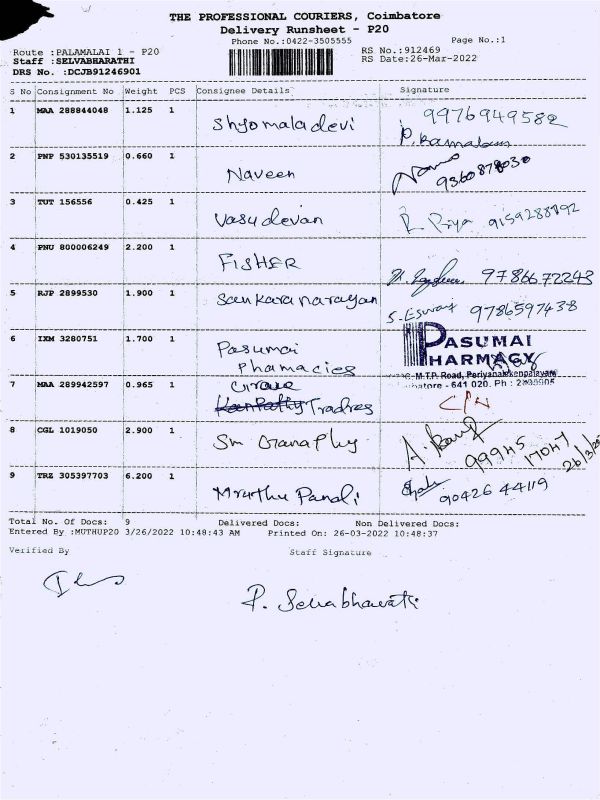 THE PROFESSIONAL COURIERS, Coimbatore
Delivery Runsheet - P20
Phone No.:0422-3505555
Page No.:1
Route :PALAMALAI 1 - P20
RS No.:912469
Staff :SELVABHARATHI
RS Date:26-Mar-2022
DRS No. :DCJB91246901
S No Consignment No Weight PCS Consignee Details Signature
1 MAA 288844048 1.125 1 Shyomaladevi 9976949582
2 PNP 530135519 0.660 1 Naveen 9360878030
3 TUT 156556 0.425 1 Vasudevan R. Priya 9159288892
4 PNU 800006249 2.200 1 FISHER 9786672243
5 RJP 2899530 1.900 1 Sankaranarayan S. Eswar 9786597438
6 IXM 3280751 1.700 1 Pasumai PASUMAI
Phamacies PHARMACY
M.T.P. Road, Periyanaickenpalayam
7 MAA 289942597 0.965 1 Grace
Tradres
8 CGL 1019050 2.900 1 99945 17047
9 TRZ 305397703 6.200 1 90426 44119
Total No. Of Docs: 9 Delivered Docs: Non Delivered Docs:
Entered By :MUTHUP20 3/26/2022 10:48:43 AM Printed On: 26-03-2022 10:48:37
Verified By Staff Signature
P. Selvabharathi